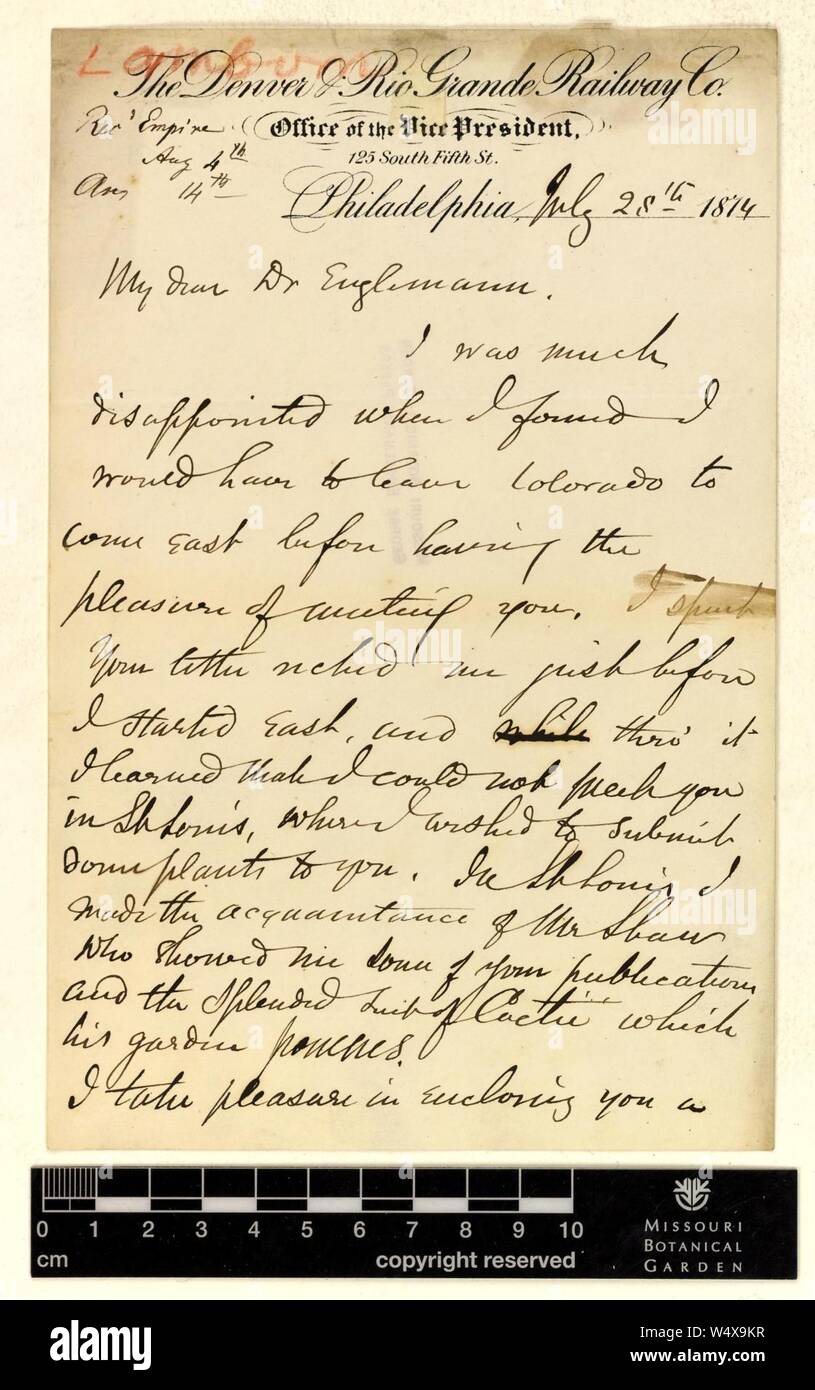 Lamborn
The Denver & Rio Grande Railway Co.
Rec' Empire
Office of the Vice President,
Aug 4th
125 South Fifth St.
Ans 14th
Philadelphia, July 28th 1874
My dear Dr Englemann.
I was much
disappointed when I found I
would have to leave Colorado to
come East before having the
pleasure of meeting you. I spent
Your letter reched me just before
I started East, and while thro' it
I learned that I could not meet you
in St Louis, where I wished to submit
some plants to you. In St Louis I
made the acquaintance of Mr Shaw
who showed me some of your publications
and the splendid suit of Cactii which
his garden posesses.
I take pleasure in enclosing you a
0 1 2 3 4 5 6 7 8 9 10
cm
copyright reserved
MISSOURI
BOTANICAL
GARDEN
alamy
Image ID: W4X9KR
www.alamy.com